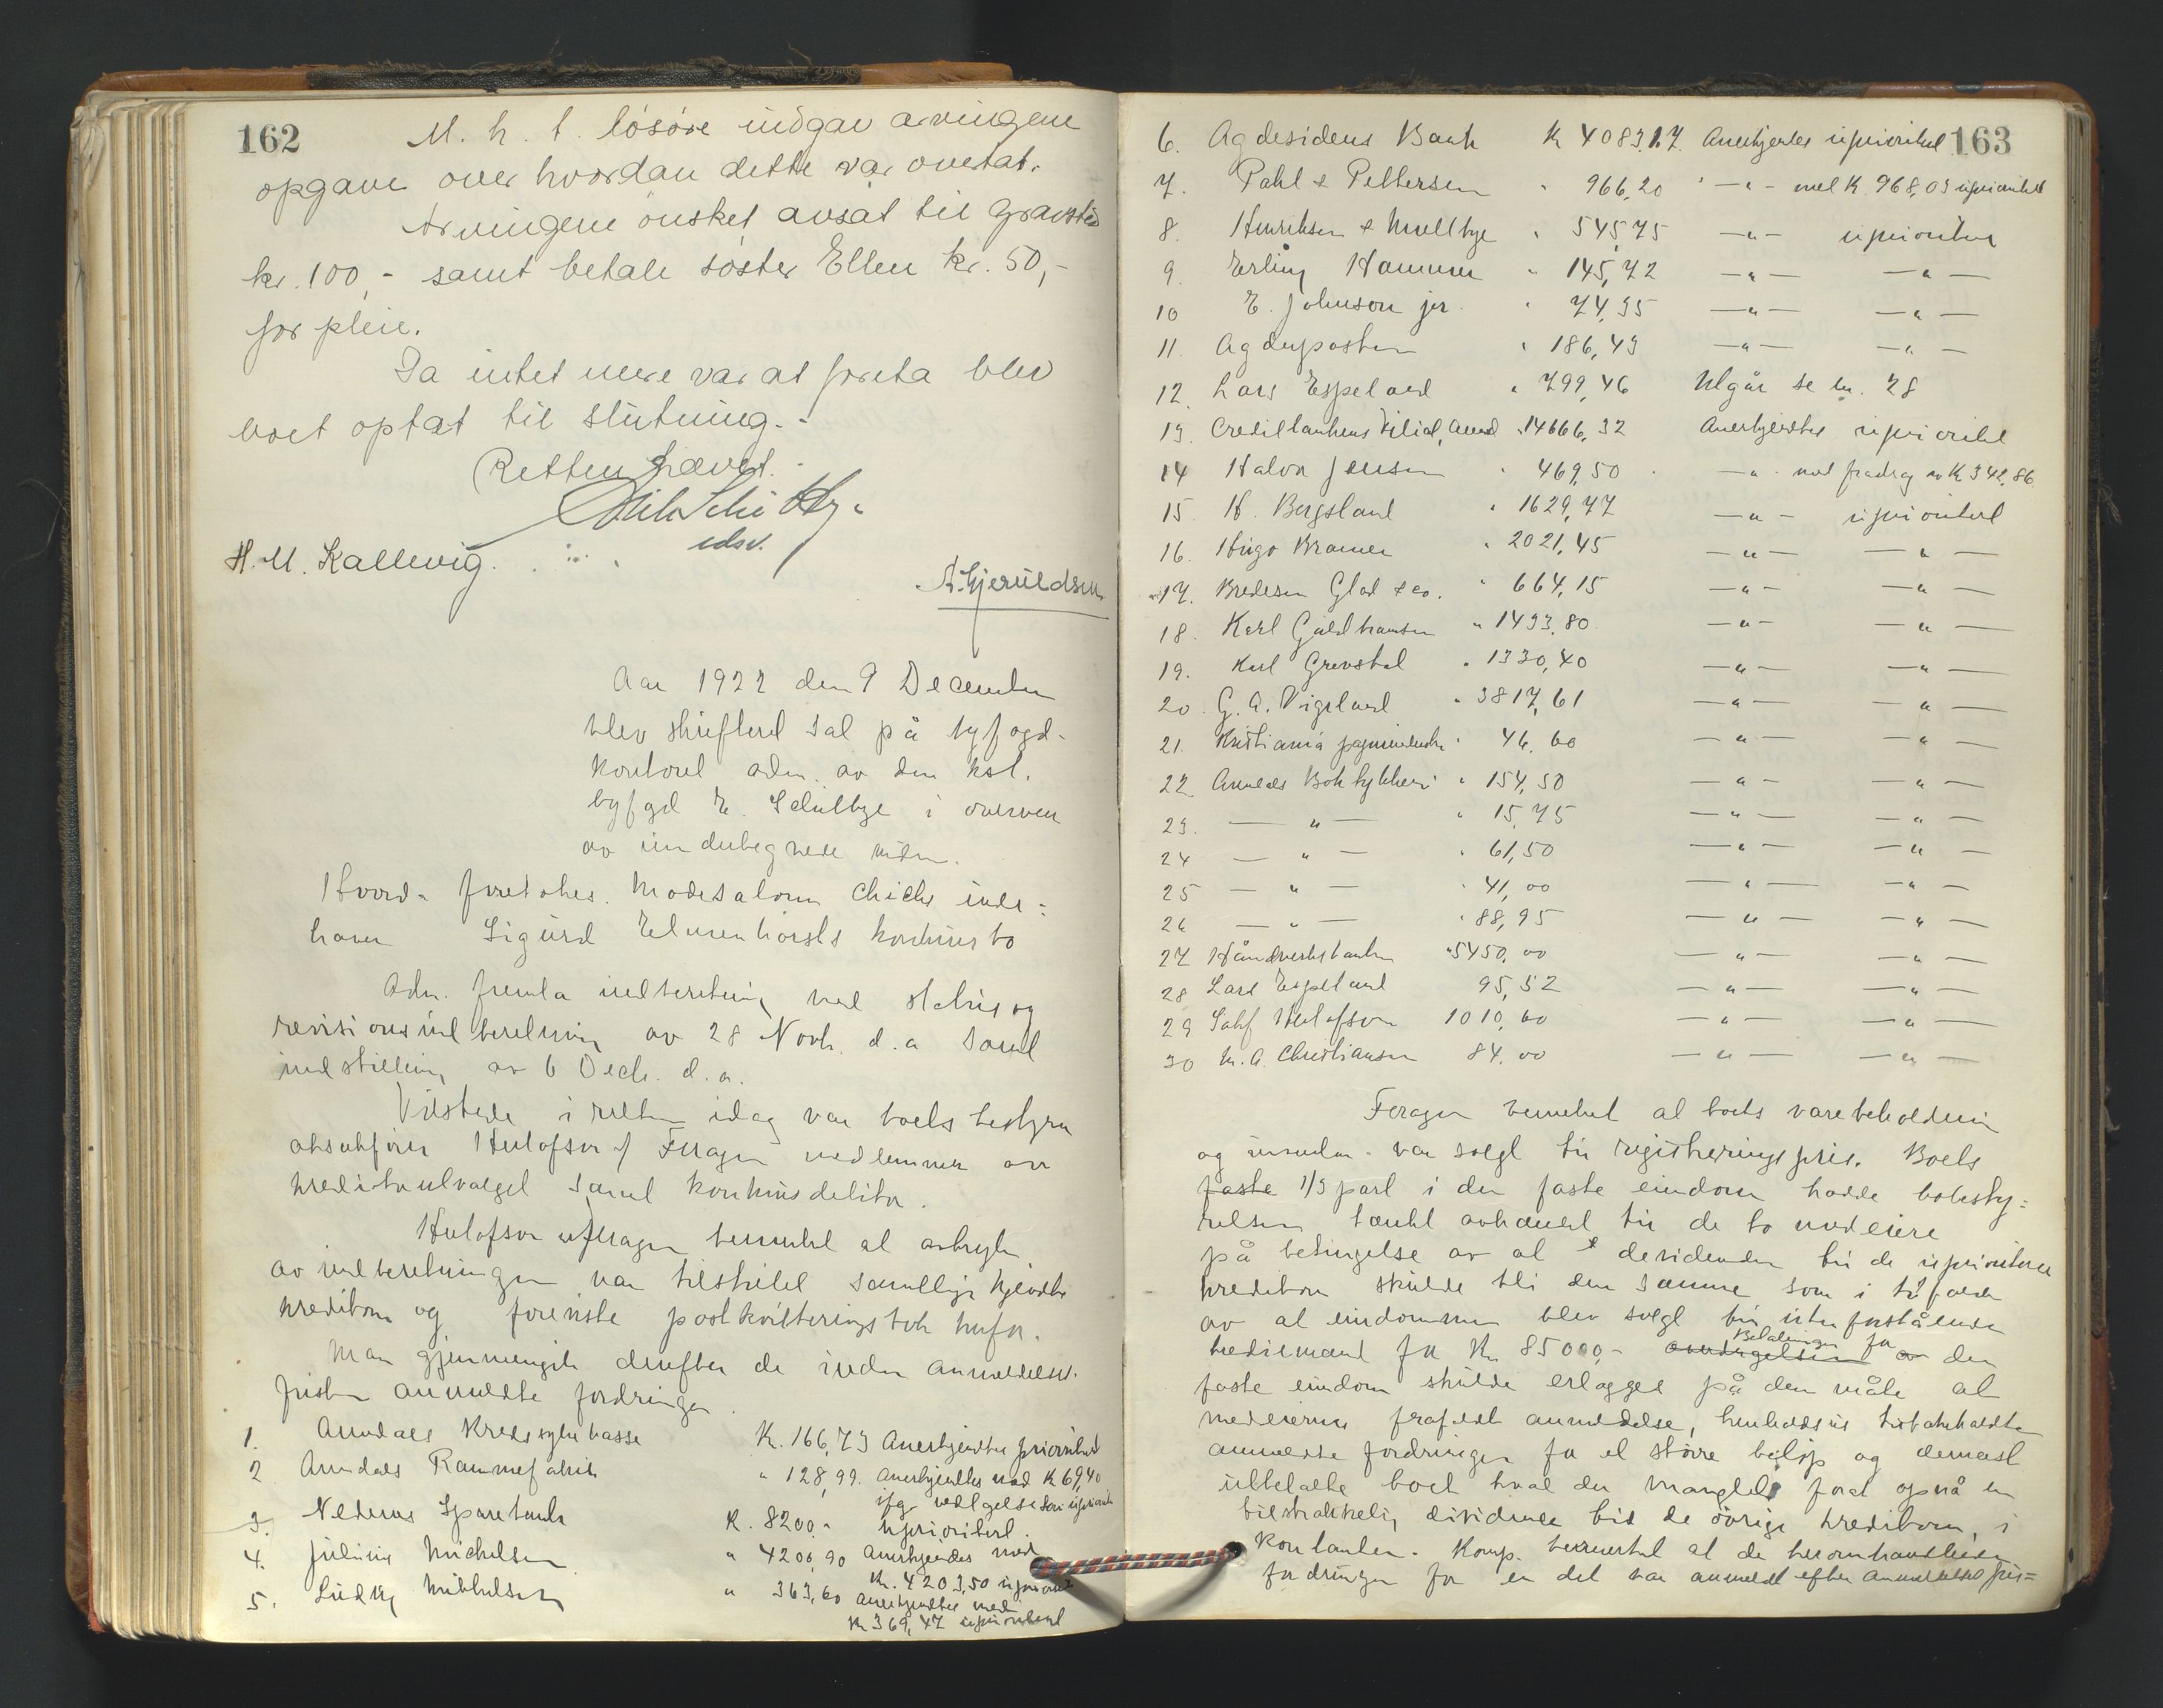 162
M. h. t. løsøre indgav arvingene
opgave over hvordan dette var overtat.
Arvingene ønsket avsat til gravsted
kr. 100,- samt betale søster Ellen kr. 50,-
for pleie.
Da intet mere var at foreta blev
boet optat til slutning. -
Retten hævet.
edsv.
H. M. Kallevig.
A. Gjeruldsen
Aar 1922 den 9 December
blev skifteret sat på byfogd-
kontoret adm. av den kst.
byfogd E. Schulbye i overvær
av undertegnede vidner.
Hvor da foretokes Modesalonen Chicks inde-
haver Sigurd Elmenhorsts konkursbo
Adm. fremla indberetning med status og
revisionsindberetning av 28 Novbr. d.a. samt
indstilling av 6 Decbr. d.a.
Tilstede i retten idag var boets bestyrer
oksakfører Herlofson v/ Feragen medlemmer av
kreditorutvalget samt konkursdebitor.
Herlofson v/ Feragen bemerket at avtryk
av indberetningen var tilstillet samtlige kjendte
kreditorer og foreviste postkvitteringsbok herfor.
Man gjennemgik derefter de inden anmeldelses-
fristen anmeldte fordringer.
1. Arendals Kredssykekasse K. 166,73 Anerkjendtes prioritert
2 Arendals Rammefabrik " 128,99. Anerkjendtes med K 69,40
ifg. vedtagelse som uprioritert
3. Nedenes Sparebank K. 8200,- uprioritert.
4. Julius Michelsen " 4206,90 Anerkjendes med
Kr. 4203,50 uprioritert
5. Ludvig Mikkelsen " 363,60 Anerkjendtes med
Kr 369,47 uprioritert
163
6. Agdesidens Bank K 4083.17. Anerkjendes uprioritert
7. Pahl & Pettersen " 966,20 " — " - med K. 968,03 uprioritert
8. Henriksen & Møllbye " 545,75 — " — uprioritert
9. Erling Hammer " 145,72 — " — — " —
10 E. Johnson jr. " 74,35 — " — — " —
11. Agderposten " 186,43 — " — — " —
12. Lars Espeland " 799,46 Utgår se nr. 28
13. Creditbankens Filial, Arendal " 14666,32 Anerkjendtes uprioritert
14 Halvor Jensen " 469,50 — " — med fradrag av K 342,86
15. H. Bergsland " 1629,77 — " — uprioritert
16. Hugo Kramer " 2021,45 — " — — " —
17. Bredesen Glad & co. " 664,15 — " — — " —
18. Karl Guldbransen " 1493.80 — " — — " —
19. Karl Grevstad " 1330,40 — " — — " —
20. G. A. Vigeland " 3817,61 — " — — " —
21. Kristiania " 46,60 — " — — " —
22 Arendals Boktrykkeri " 154,50 — " — — " —
23. — " — " 15,75 — " — — " —
24 — " — " 61,50 — " — — " —
25 — " — " 41,00 — " — — " —
26 — " — " 88,95 — " — — " —
27 Håndverksbanken " 5450,00 — " — — " —
28 Lars Espeland 95,52 — " — — " —
29 Sakf Herlofson 1010,60 — " — — " —
30 M. A. Christiansen 84,00 — " — — " —
Feragen bemerket at boets varebeholdning
og inventar var solgt til registreringspris. Boets
faste 1/3 part i den faste eiendom hadde bobesty-
relsen tænkt avhændet til de to medeiere
på betingelse av at devidenden til de uprioriterte
kreditorer skulde bli den samme som i tilfælde
av at eiendommen blev solgt til utenforstående
trediemand for Kr. 85000,- Betalingen for den
faste eiendom skulde erlægges på den måte at
medeierne frafaldt anmeldelse, henholdsvis tilbakeholdte
anmeldte fordringer for et større beløp og dernæst
utbetalte boet hvad der manglet for at opnå en
tilstrækkelig dividende til de øvrige kreditorer, i
kontanter. Komp. bemerket at de herom handlende
fordringer for en del var anmeldt efter anmeldelsesfris-